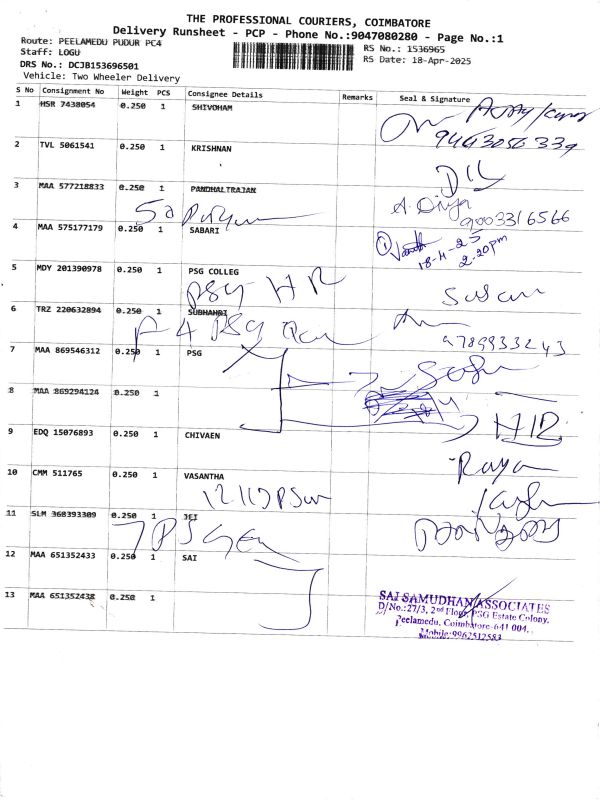 THE PROFESSIONAL COURIERS, COIMBATORE
Delivery Runsheet - PCP - Phone No.:9047080280 - Page No.:1
Route: PEELAMEDU PUDUR PC4
RS No.: 1536965
Staff: LOGU
RS Date: 18-Apr-2025
DRS No.: DCJB153696501
Vehicle: Two Wheeler Delivery
S No Consignment No Weight PCS Consignee Details Remarks Seal & Signature
1 HSR 7438054 0.250 1 SHIVOHAM
2 TVL 5061541 0.250 1 KRISHNAN
3 MAA 577218833 0.250 1 PANDHALTRAJAN
A. Divya
9003316566
4 MAA 575177179 0.250 1 SABARI
18-4-25
2.20pm
5 MDY 201390978 0.250 1 PSG COLLEG
PSG HR
Susan
6 TRZ 220632894 0.250 1 SUBHAHRI
F 4 PSG
9789933243
7 MAA 869546312 0.250 1 PSG
8 MAA 869294124 0.250 1
HR
9 EDQ 15076893 0.250 1 CHIVAEN
10 CMM 511765 0.250 1 VASANTHA
11 SLM 368393309 0.250 1 JEI
12 MAA 651352433 0.250 1 SAI
13 MAA 651352438 0.250 1
SAI SAMUDHAN ASSOCIATES
D/No.:27/3, 2nd Floor, PSG Estate Colony,
Peelamedu, Coimbatore-641 004.
Mobile:9962512583